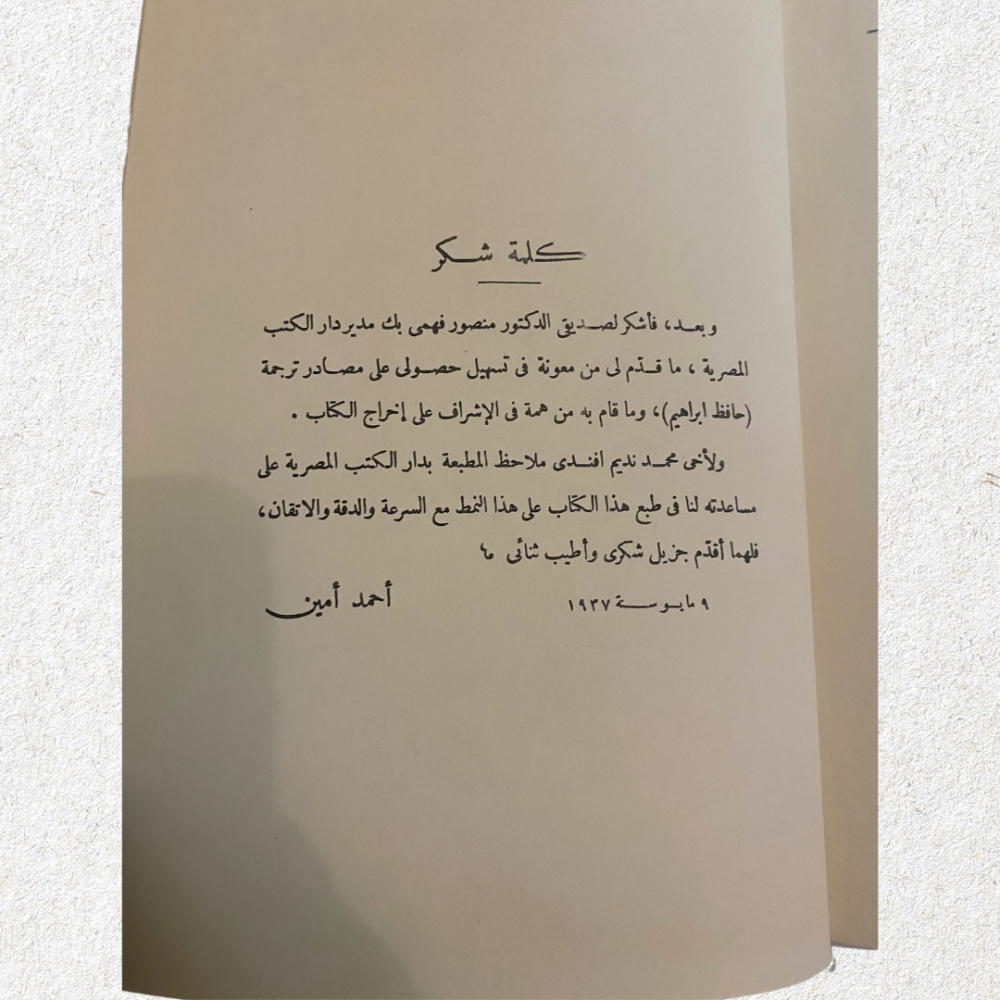 كلمة شكر
وبعد، فأشكر لصديقى الدكتور منصور فهمى بك مدير دار الكتب
المصرية، ما قدّم لى من معونة فى تسهيل حصولى على مصادر ترجمة
(حافظ ابراهيم)، وما قام به من همة فى الإشراف على إخراج الكتاب.
ولأخى محمد نديم افندى ملاحظ المطبعة بدار الكتب المصرية على
مساعدته لنا فى طبع هذا الكتاب على هذا النمط مع السرعة والدقة والاتقان،
فلهما أقدّم جزيل شكرى وأطيب ثنائى
٩ مايو سنة ١٩٣٧ أحمد أمين